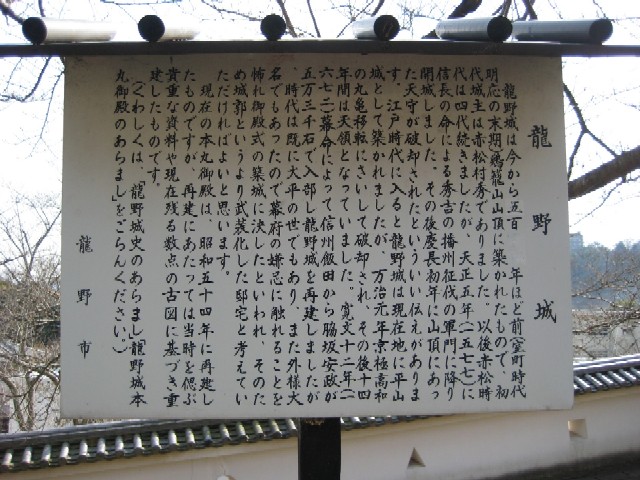 龍野城
龍野城は今から五百年ほど前室町時代
明応の末期鶏籠山山頂に築かれたもので、初
代城主は赤松村秀でありました。以後赤松時
代は四代続きましたが、天正五年(一五七七)に
信長の命による秀吉の播州征伐の軍門に降り
開城しました。その後慶長初年に山頂にあっ
た天守が破却されたといういい伝えがありま
す。江戸時代に入ると龍野城は現在地に平山
城として築かれましたが、万治元年京極高和
の丸亀移転にさいして破却され、その後十四
年間は天領となっていました。寛文十二年(一
六七二)幕命によって信州飯田から脇坂安政が
五万三千石で入部し龍野城を再建しましたが
、時代は既に太平の世でもあり、また外様大
名でもあったので幕府の嫌忌に触れることを
怖れ御殿式の築城に決したといわれ、そのた
め城郭というより武装化した邸宅と考えてい
ただければよいと思います。
現在の本丸御殿は、昭和五十四年に再建し
たものですが、再建にあたっては当時を偲ぶ
貴重な資料や現在残る数点の古図に基づき重
建したものです。
(くわしくは、「龍野城史のあらまし」「龍野城本
丸御殿のあらまし」をごらんください。)
龍野市